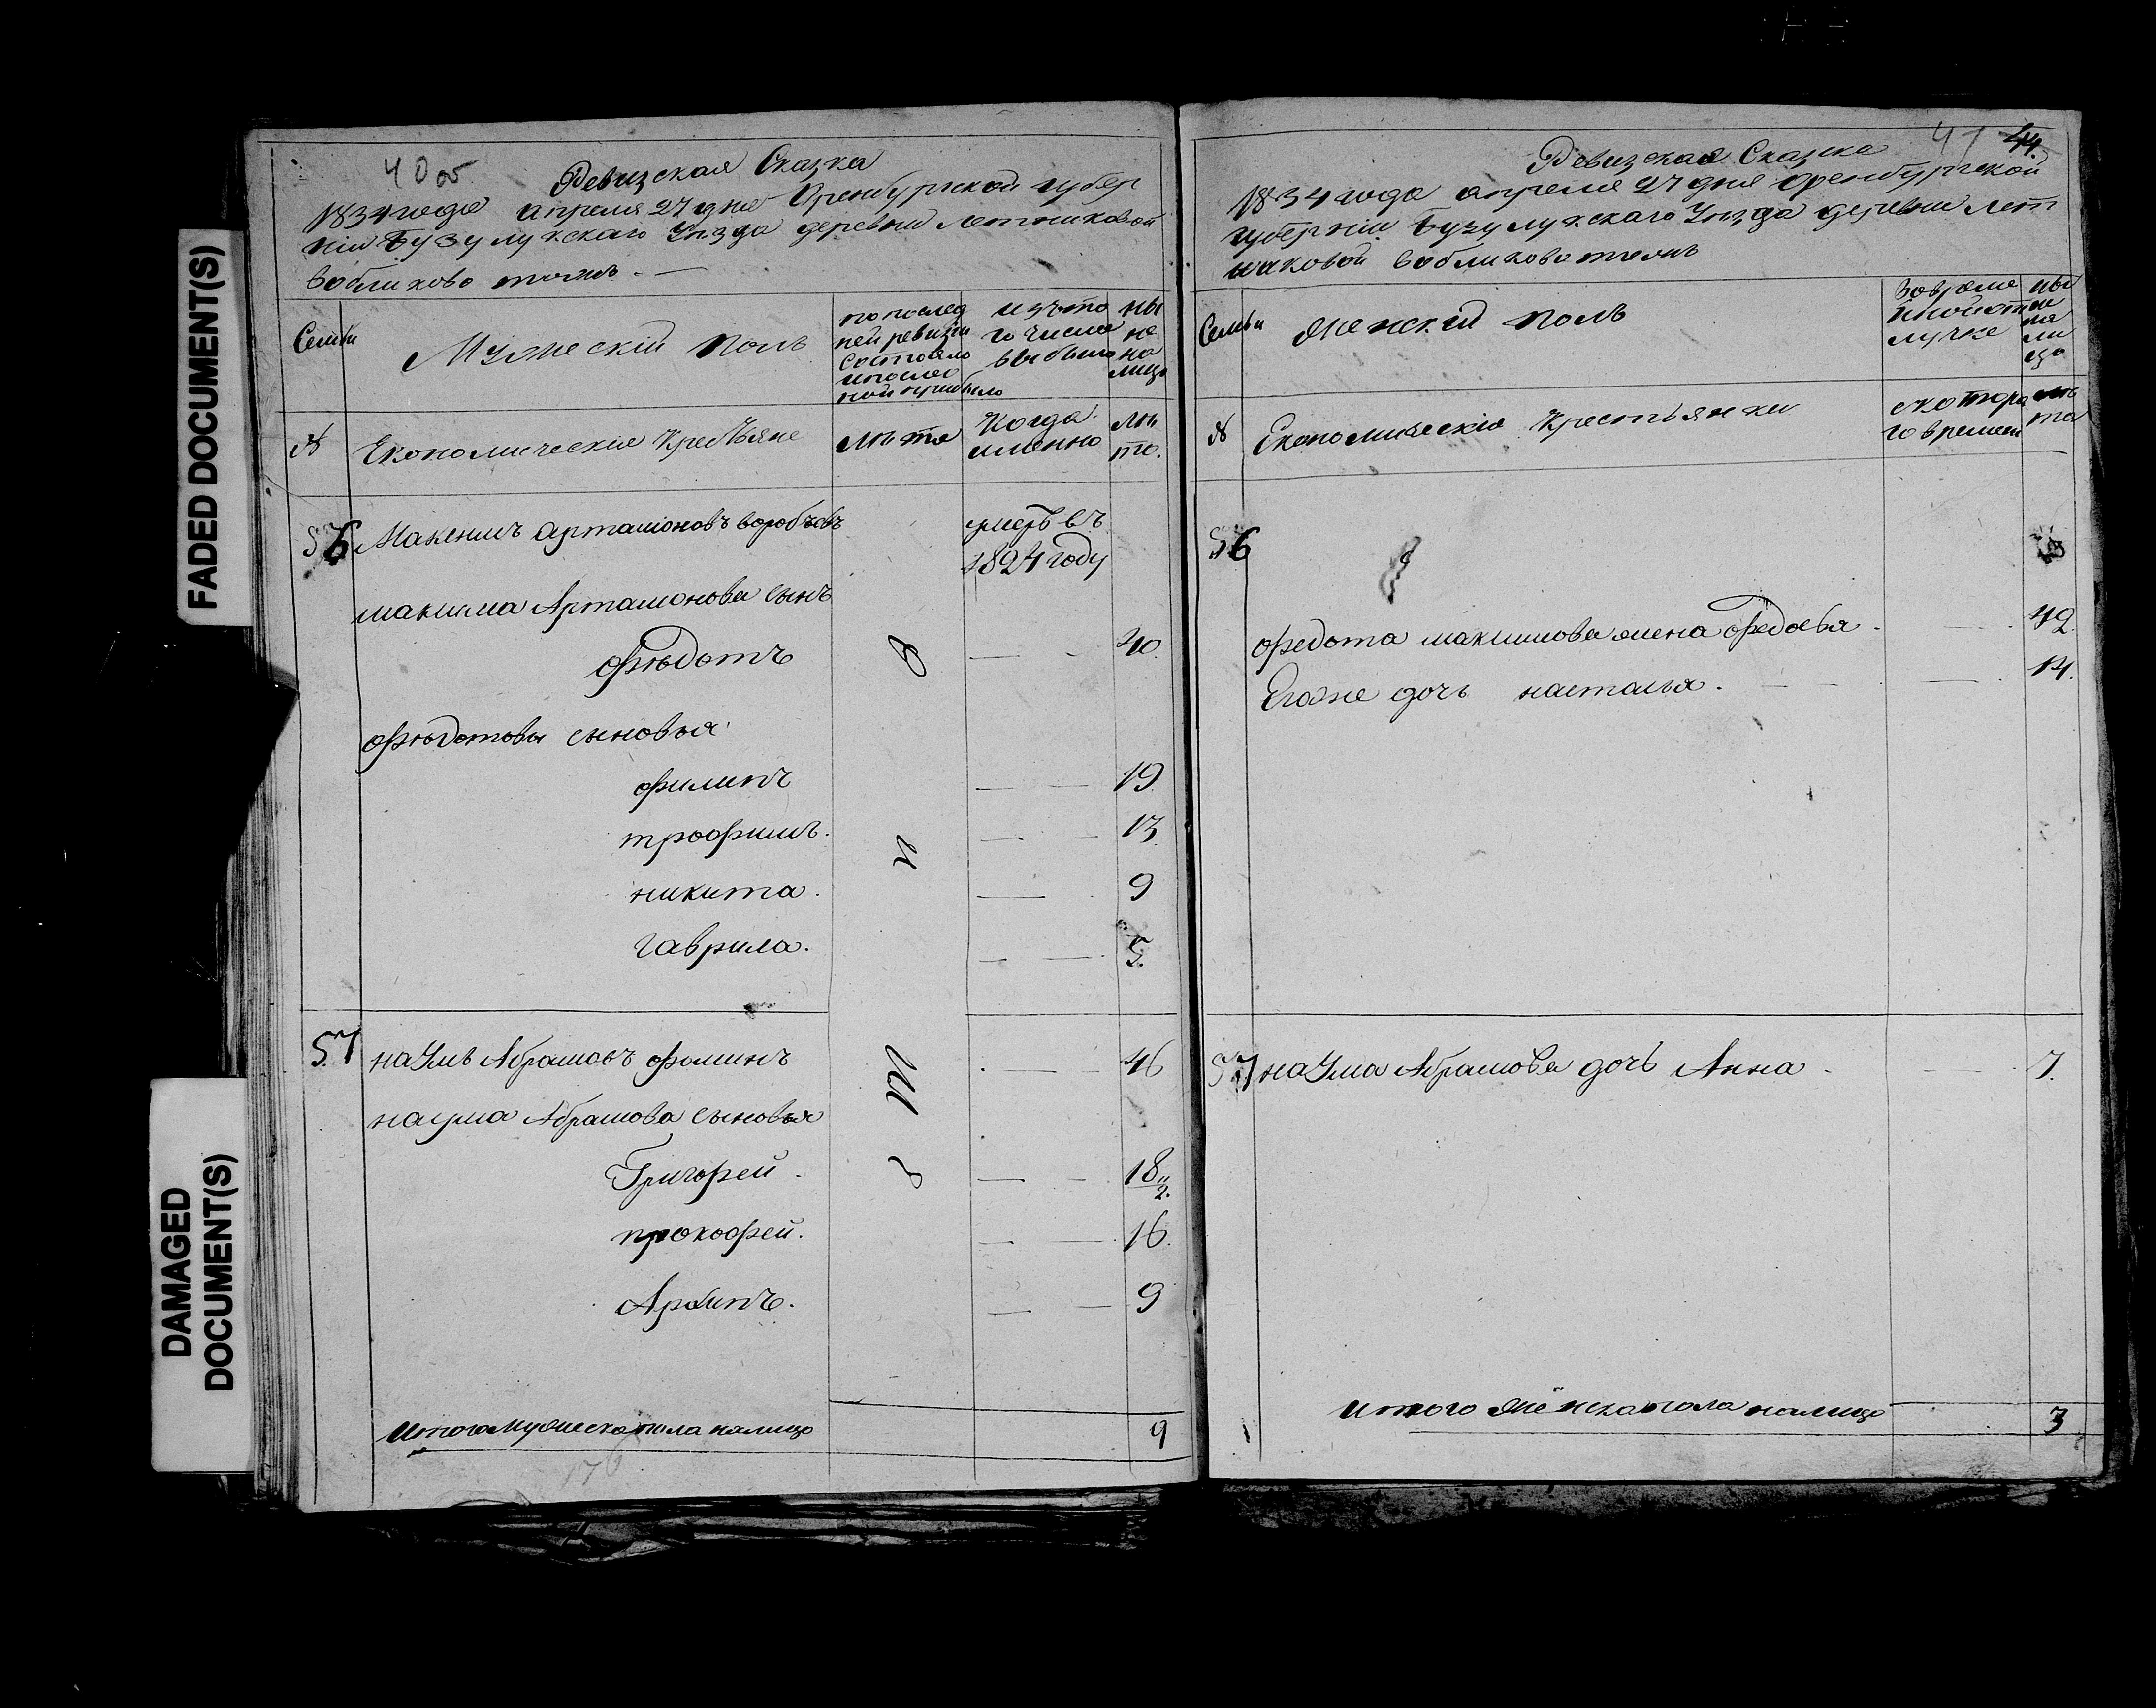 FADED DOCUMENT(S)
DAMAGED
DOCUMENT(S)
40 об
Ревизская Сказка
1834 года апреля 27 дня Оренбурской губер
нiи Бузулукскаго Уезда деревни летниковой
вобликово тожъ.
Семьи
Мужескiй полъ
по послед
ней ревизiи
состояло
и после
ной прибыло
изъ то
го числа
выбыло
ны
не
на
лицо
№
Економическiя Крестьяне
лѣта
Когда
именно
лѣ
та.
56 Максимъ Артамоновъ воробьевъ
умеръ въ
1824 году
максима Артамонова сынъ
Фѣдотъ 40
Фѣдотовы сыновья
филипъ 19
трофимъ. 13
никита. 9
гаврила. 5.
57 наумъ Абрамовъ фоминъ 46
наума Абрамова сыновья
Григорей 18 1/2.
прокофей. 16.
Архипъ. 9
Итого Мужеска пола налицо 9
176
41
44.
Ревизская Сказка
1834 года апреля 27 дня Оренбургской
губернiи Бузулукскаго Уезда деревни лет
никовой вобликово тожъ
Семьи
Женскiй полъ
вовреме
нной от
лучке
ны
не
на
ли
цо
№
Економическiя Крестьянки
скотора
го времени
лѣ
та
56
федота максимова жена Федосья 42.
Егоже дочь наталья. 14.
57 наума Абрамова дочь Анна 7.
Итого Женска пола налицо 3